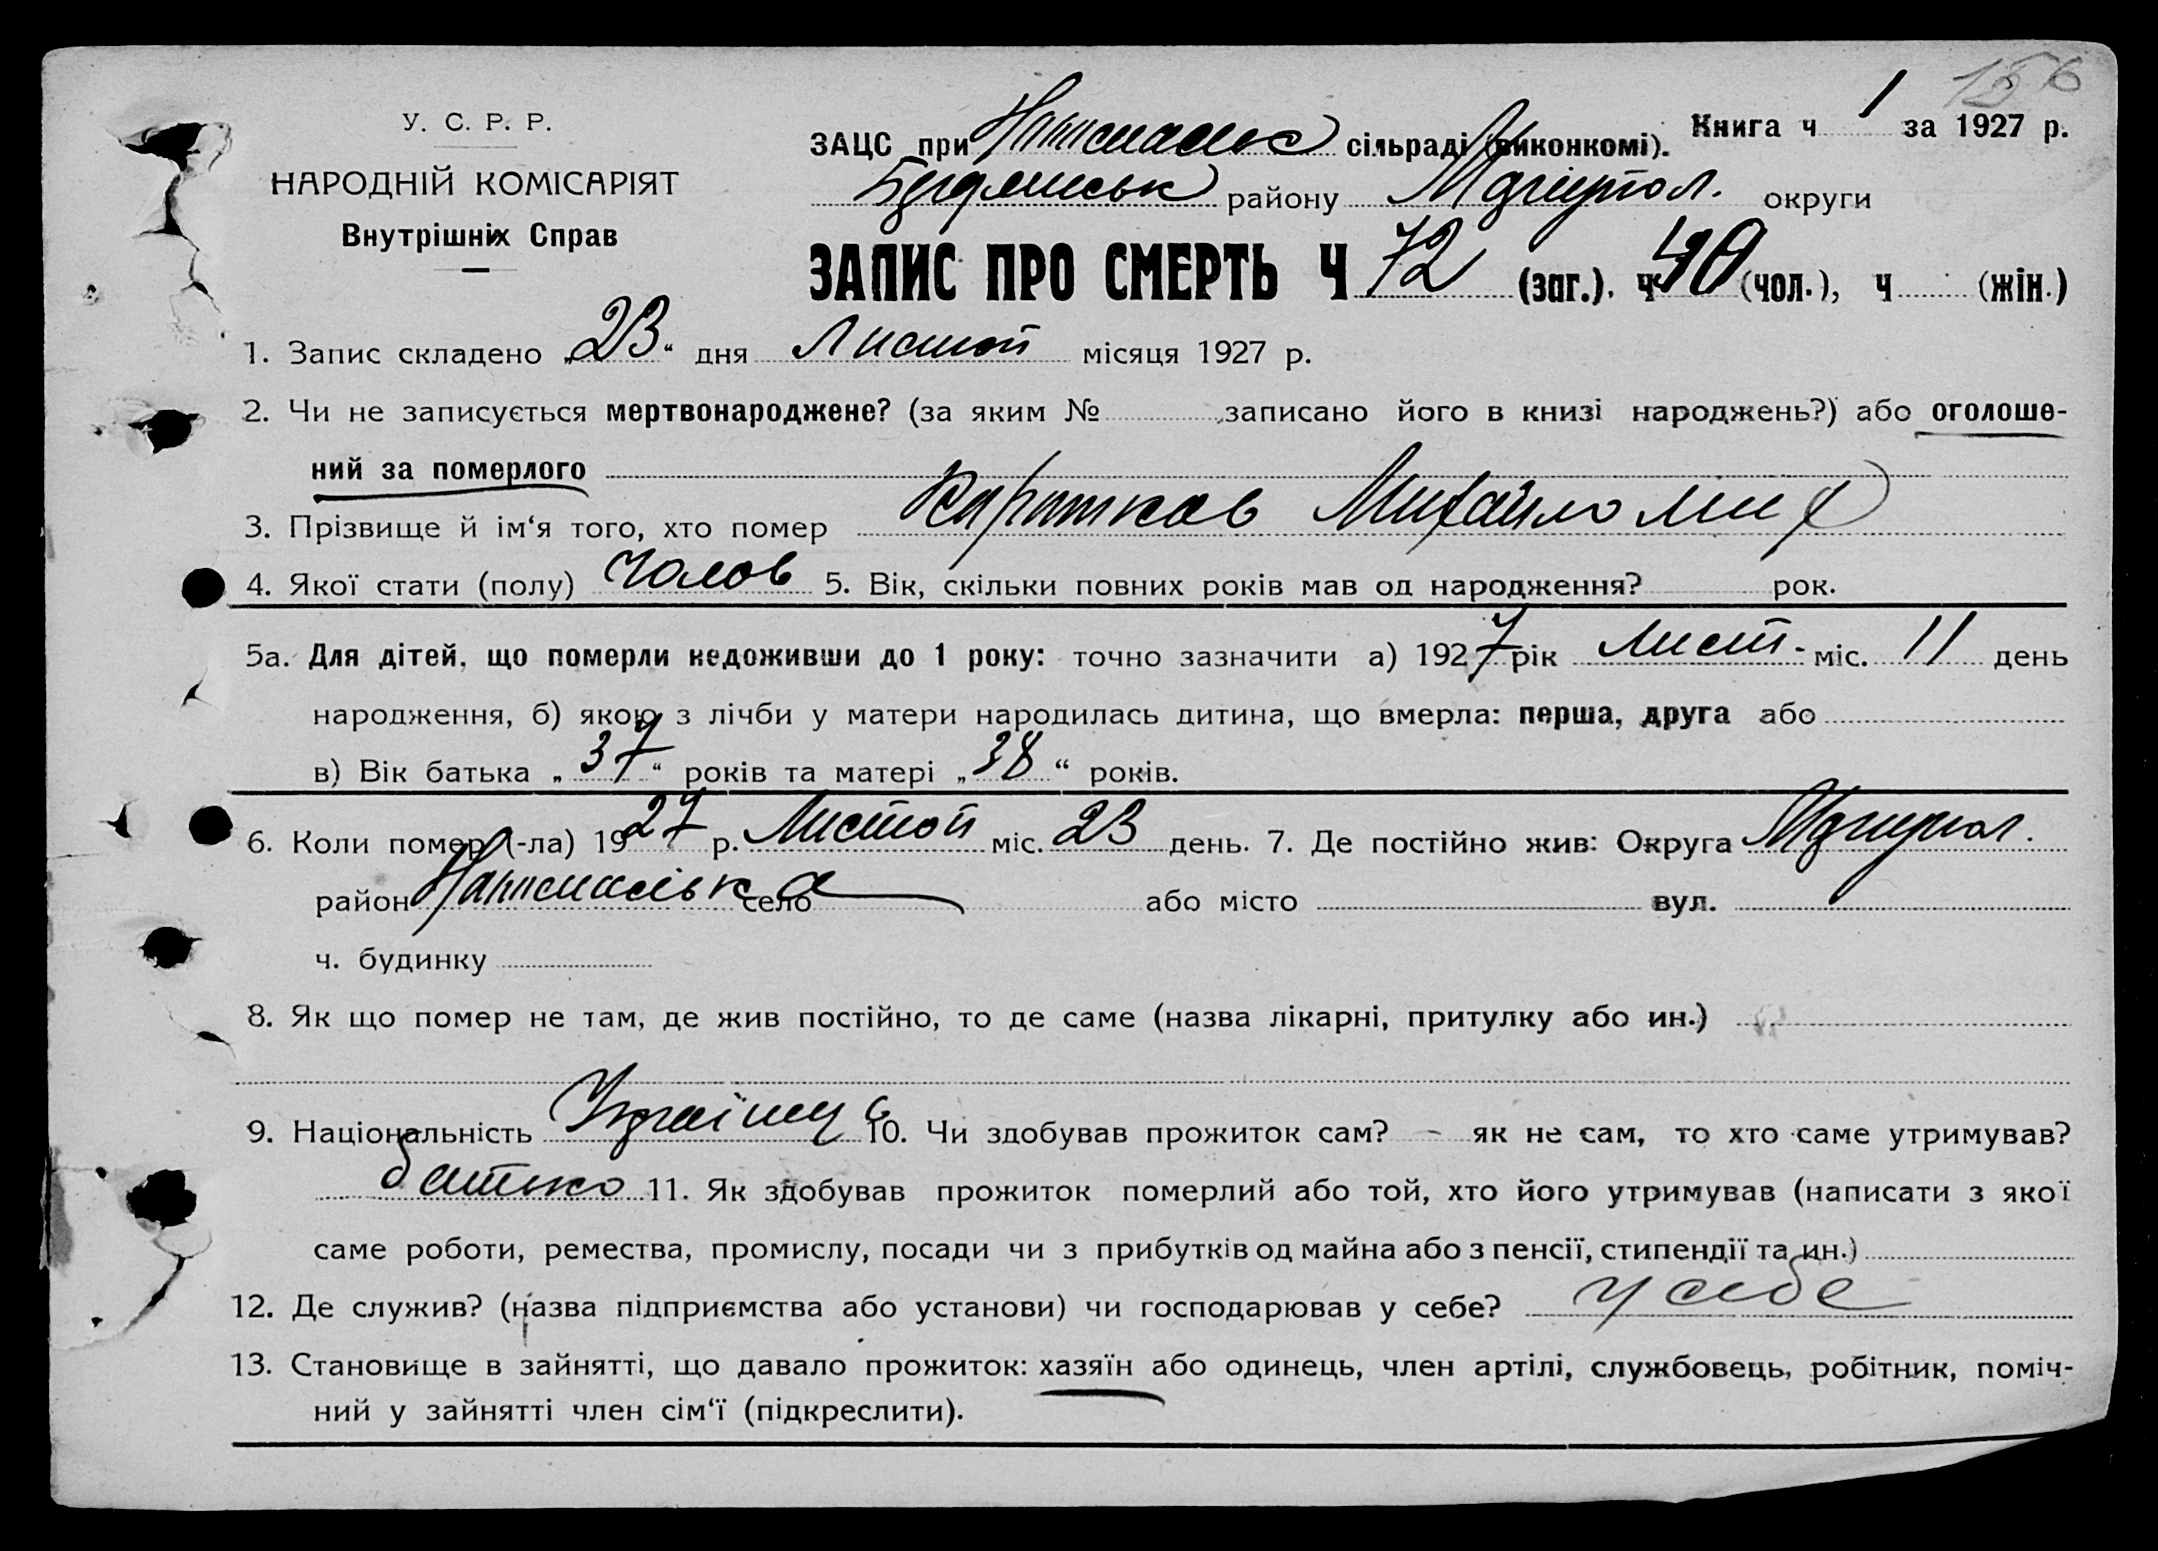 156
У. С. Р. Р.
НАРОДНІЙ КОМІСАРІЯТ
Внутрішніх Справ
ЗАЦС при сільраді (виконкомі). Книга ч 1 за 1927 р.
району Маріупол. округи
ЗАПИС ПРО СМЕРТЬ Ч 72 (заг.). ч 40 (чол.), ч (жін.)
1. Запис складено „23“ дня Листоп місяця 1927 р.
2. Чи не записується мертвонароджене? (за яким № записано його в книзі народжень?) або оголоше-
ний за померлого
3. Прізвище й ім‘я того, хто помер Михайло Мих
4. Якої стати (полу) Чолов 5. Вік, скільки повних років мав од народження? рок.
5а. Для дітей, що померли недоживши до 1 року: точно зазначити а) 1927 рік Лист. міс. 11 день
народження, б) якою з лічби у матери народилась дитина, що вмерла: перша, друга або
в) Вік батька „37“ років та матері „38“ років.
6. Коли помер (-ла) 1927 р. Листоп міс. 23 день. 7. Де постійно жив: Округа Маріупол.
район село або місто вул.
ч. будинку
8. Як що помер не там, де жив постійно, то де саме (назва лікарні, притулку або ин.)
9. Національність Українец 10. Чи здобував прожиток сам? – як не сам, то хто саме утримував?
батько 11. Як здобував прожиток померлий або той, хто його утримував (написати з якої
саме роботи, ремества, промислу, посади чи з прибутків од майна або з пенсії, стипендії та ин.)
12. Де служив? (назва підприємства або установи) чи господарював у себе? у себе
13. Становище в зайнятті, що давало прожиток: хазяїн або одинець, член артілі, службовець, робітник, поміч-
ний у зайнятті член сім‘ї (підкреслити).